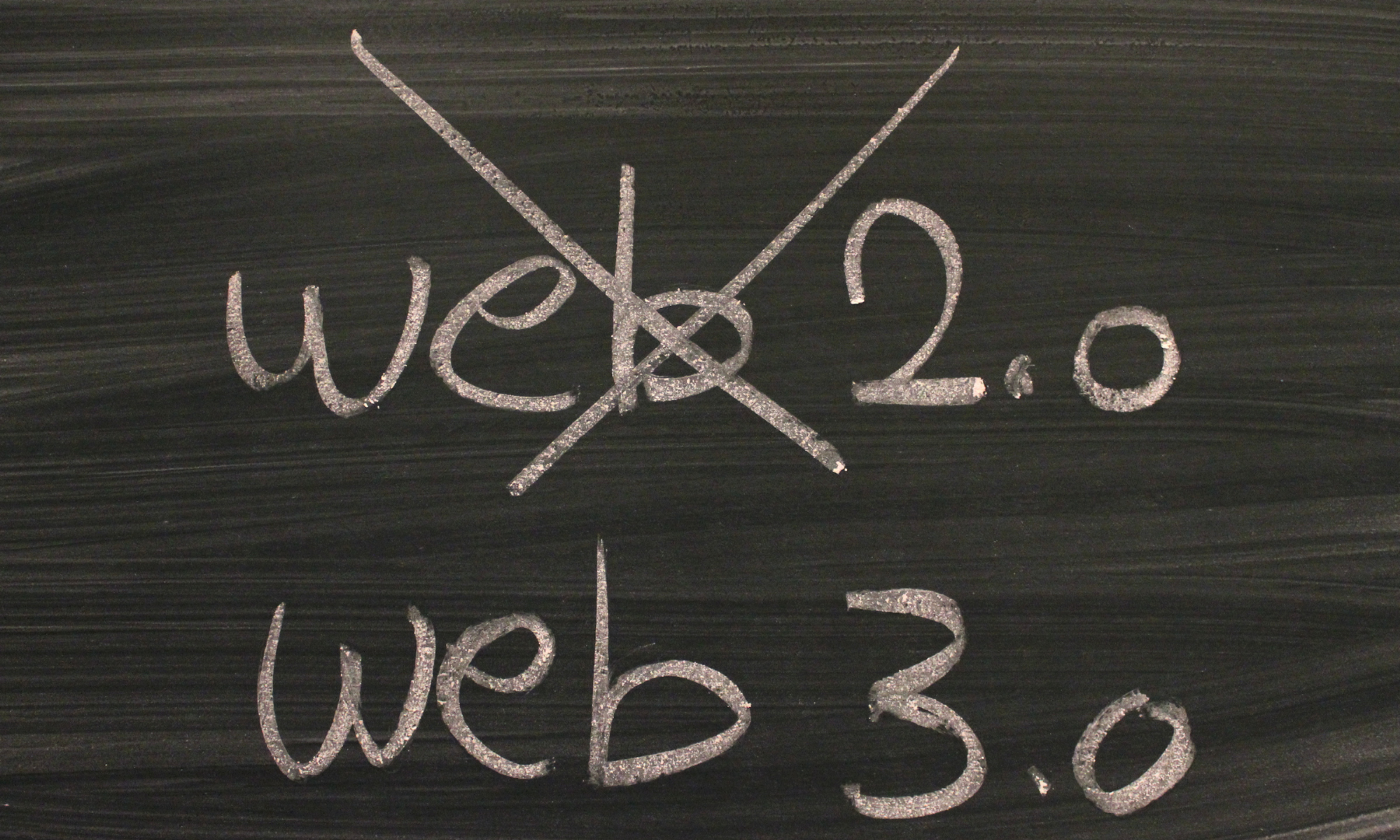 web 2.0
web 3.0